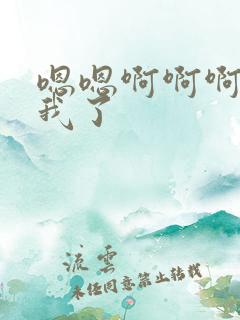 嗯嗯啊啊啊
我了
流雲
未经同意禁止转载